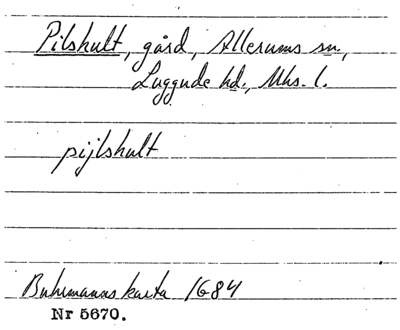 Pilshult, gård, Allerums sn,
Luggude hd., Mhs. l.
pijlshult
Buhrmanns karta 1684
Nr 5670.